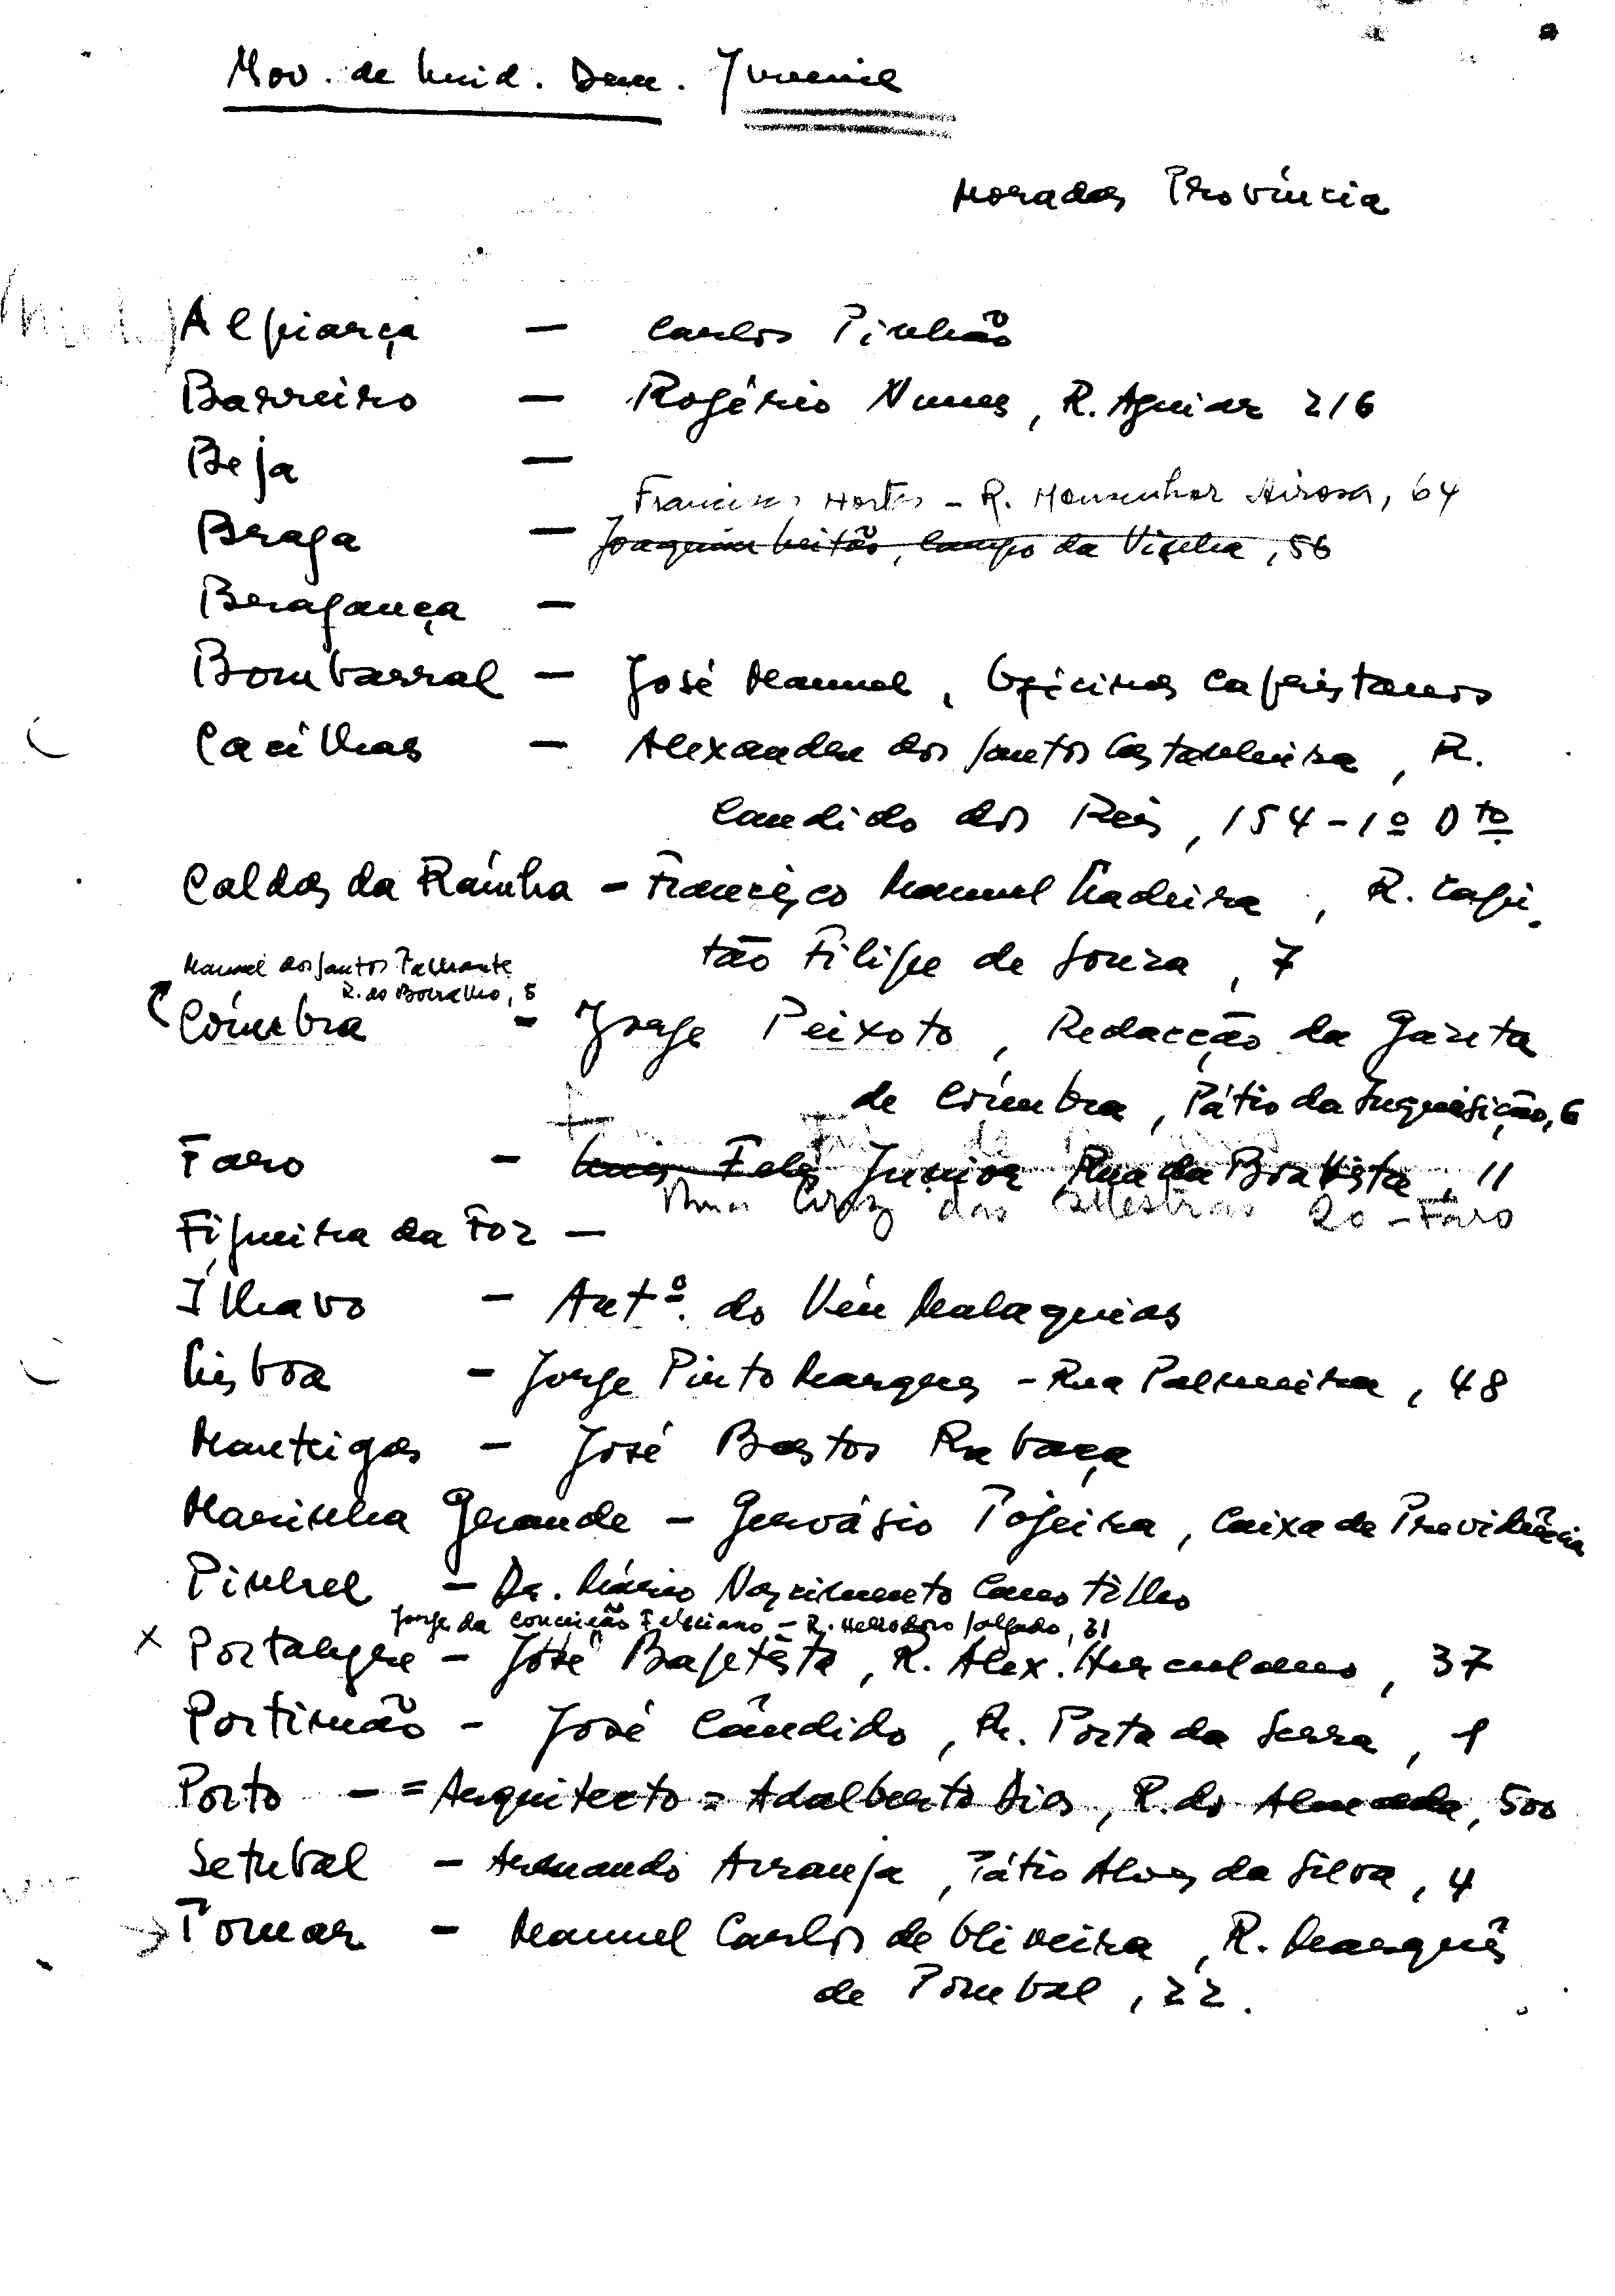 Mov. de Unid. Dem. Juvenil
Moradas Província
Alpiarça — Carlos Pinhão
Barreiro — Rogério Nunes, R. Aguiar 216
Beja —
Francisco Horta - R. Monsenhor Airosa, 64
Braga — Joaquim Leitão, Campo da Vinha, 56
Bragança —
Bombarral — José Manuel, Oficinas Capristanos
Cacilhas — Alexandre dos Santos Castanheira, R.
Candido dos Reis, 154-1º Dtº
Caldas da Raínha - Francisco Manuel Madeira, R. Capi-
tão Filipe de Souza, 7
Manuel dos Santos Palhante
R. do Borralho, 5
Coímbra - Jorge Peixoto, Redacção da Gazeta
de Coímbra, Pátio da Inquisição, 6
Faro - Luis Junior Rua da Boa Vista, 11
Rua Cruz das Mestras 20 - Faro
Figueira da Foz —
Ílhavo - Antº. do Véu Malaquias
Lisboa - Jorge Pinto Marques - Rua Palmeira, 48
Manteigas - José Bastos Rabaça
Marinha Grande - Gervásio Pojeira, Caixa de Previdência
Pinhel - Dr. Mário Nascimento Canotilho
Jorge da Conceição Feliciano - R. Heliodoro Salgado, 31
x Portalegre - José Baptista, R. Alex. Herculano, 37
Portimão - José Cândido, R. Porta da Serra, 1
Porto - = Arquitecto = Adalberto Dias, R. do Almada, 500
Setubal - Armando Arranja, Pátio Alves da Silva, 4
Tomar - Manuel Carlos de Oliveira, R. Marquês
de Pombal, 22.